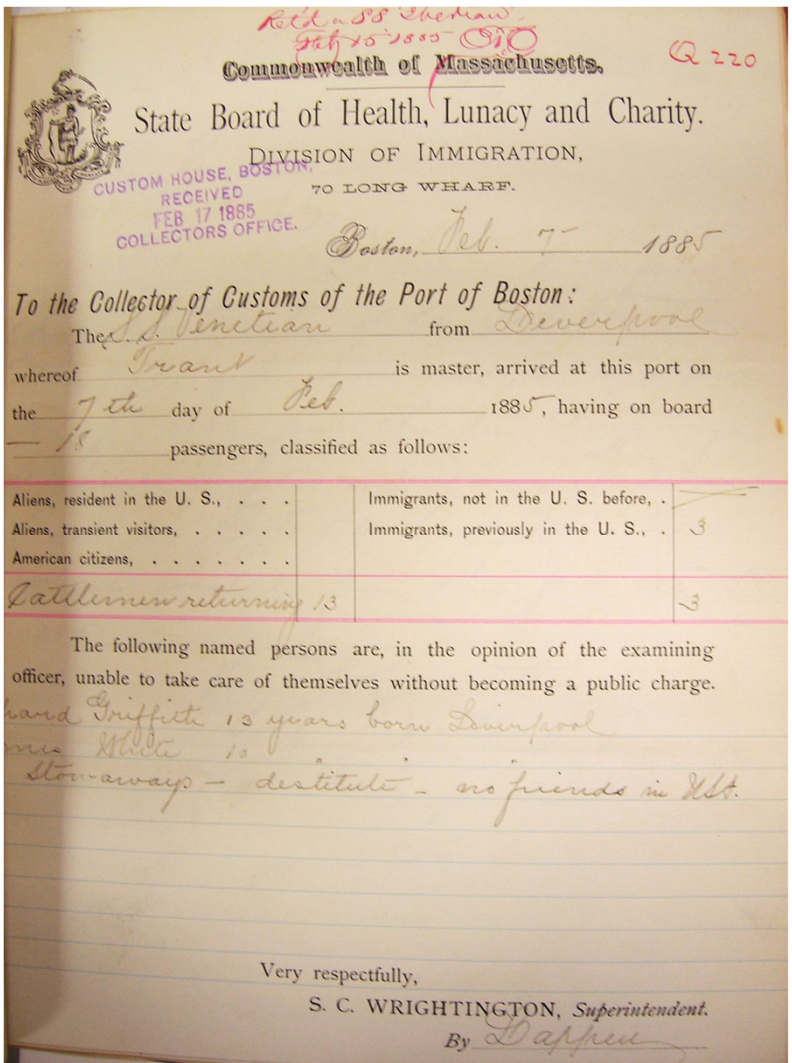 Ret'd in SS Iberian
Feb 15 1885
Q 220
Commonwealth of Massachusetts.
State Board of Health, Lunacy and Charity.
DIVISION OF IMMIGRATION,
70 LONG WHARF.
CUSTOM HOUSE, BOSTON,
RECEIVED
FEB 17 1885
COLLECTORS OFFICE.
Boston, Feb. 7 1885
To the Collector of Customs of the Port of Boston:
The S.S. Venetian from Liverpool
whereof Trant is master, arrived at this port on
the 7th day of Feb. 1885, having on board
— 18 passengers, classified as follows:
Aliens, resident in the U. S., . . . Immigrants, not in the U. S. before, .
Aliens, transient visitors, . . . . . Immigrants, previously in the U. S., . 3
American citizens, . . . . . . .
Cattlemen returning 13 3
The following named persons are, in the opinion of the examining
officer, unable to take care of themselves without becoming a public charge.
hard Griffith 13 years born Liverpool
mes White 10 " "
Stowaways – destitute – no friends in USA.
Very respectfully,
S. C. WRIGHTINGTON, Superintendent.
By